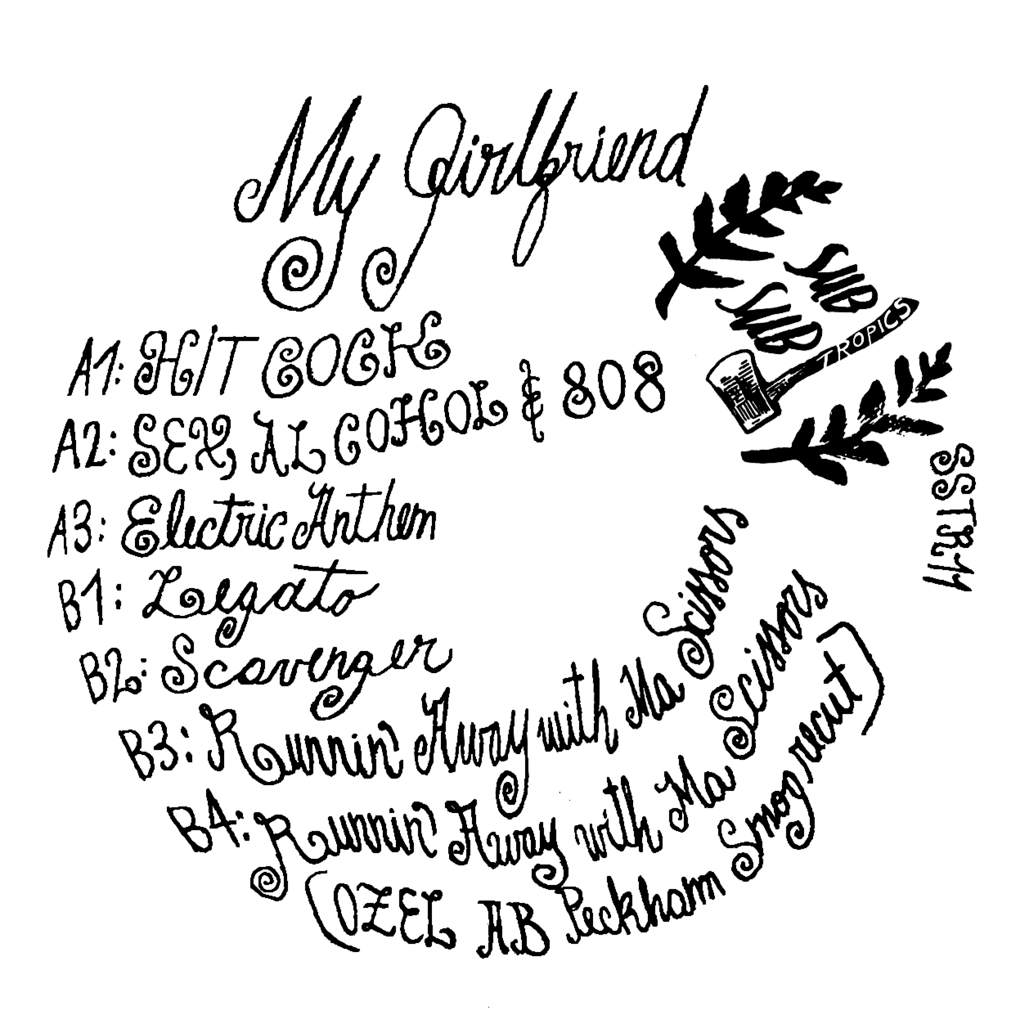 My Girlfriend
SUB
SUB
TROPICS
A1: H/T COCK
A2: SEX, ALCOHOL & 808
A3: Electric Anthem
SSTR11
B1: Legato
B2: Scavenger
B3: Runnin' Away with Ma Scissors
B4: Runnin' Away with Ma Scissors
(OZEL AB Peckham Smog recut)